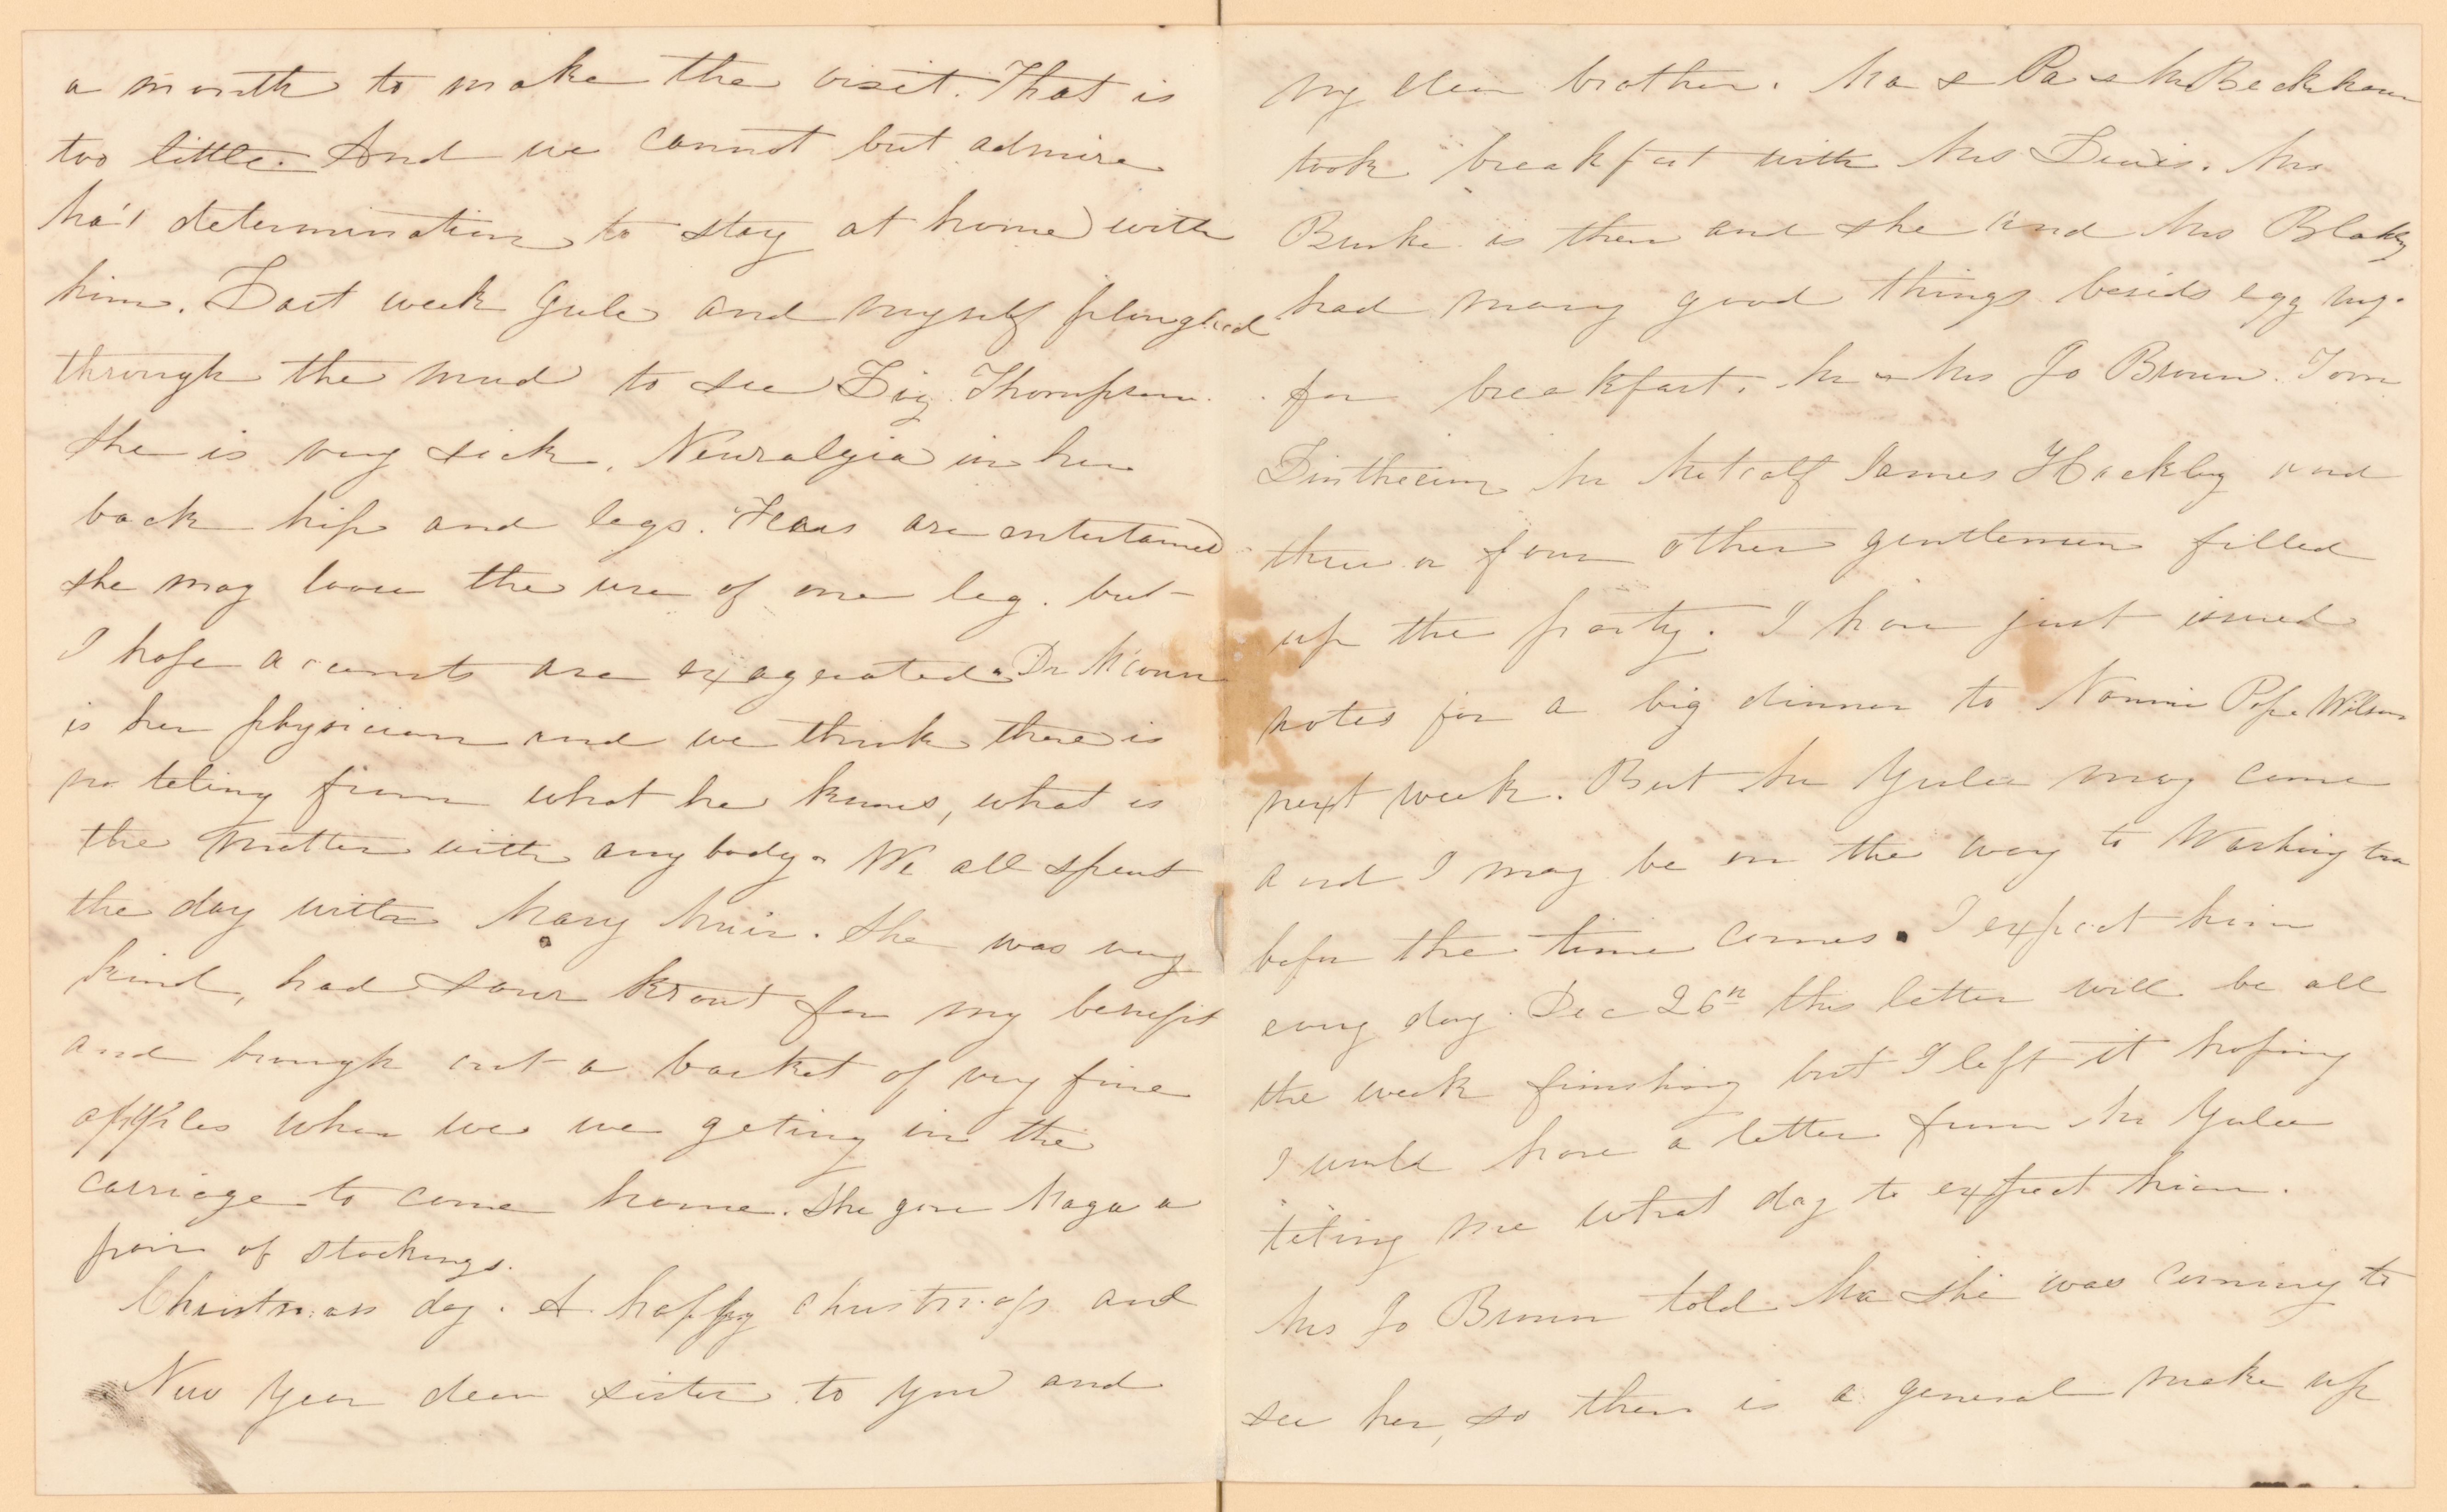 a month to make the visit. That is
too little. And we cannot but admire
Ma's determination to stay at home with
him. Last week Yule and myself ploughed
through the mud to see Liz Thompson.
She is very sick. Neuralgia in her
back hip and legs. Fears are entertained
she may loose the use of one leg. but
I hope accounts are exagerated. Dr
is her physician and we think there is
no teling from what he knows, what is
the matter with any body. We all spent
the day with Mary Muir. She was very
kind, had sour krout for my benefit
and brough out a basket of very fine
apples when we we geting in the
carriage to come home. She gave Maga a
pair of stockings.
Christmass day. A happy christmass and
New Year dear sister to you and
my dear brother. Ma & Pa & Mr Beckham
took breakfast with Mrs Lewis. Mrs
Burke is there and she and Mrs Blakey
had many good things besids egg nog.
for breakfast. Mr & Mrs Jo Brown. Tom
Linthecum Mr Metcalf James Hackley and
three or four other gentlemen filled
up the party. I have just issued
notes for a big dinner to Nannie Pope Wilson
next week. But Mr Yulee may come
and I may be on the way to Washington
before the time comes. I expect him
every day. Dec 26th this letter will be all
the week finishing but I left it hoping
I would have a letter from Mr Yulee
teling me what day to expect him.
Mrs Jo Brown told Ma she was coming to
see her, so there is a general make up